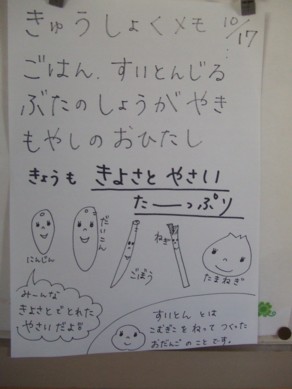 きゅうしょくメモ 10/17
ごはん、すいとんじる
ぶたのしょうがやき
もやしのおひたし
きょうも きよさと やさい
たーっぷり
にんじん
だいこん
ごぼう
ねぎ
たまねぎ
みーんな
きよさとでとれた
やさいだよ
すいとん とは
こむぎこを ねって つくった
おだんごのことです。